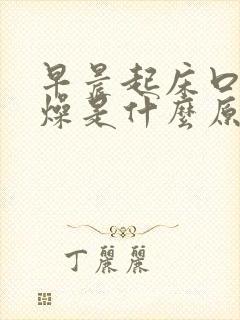 早晨起床口
燥是什麼原
丁麗麗